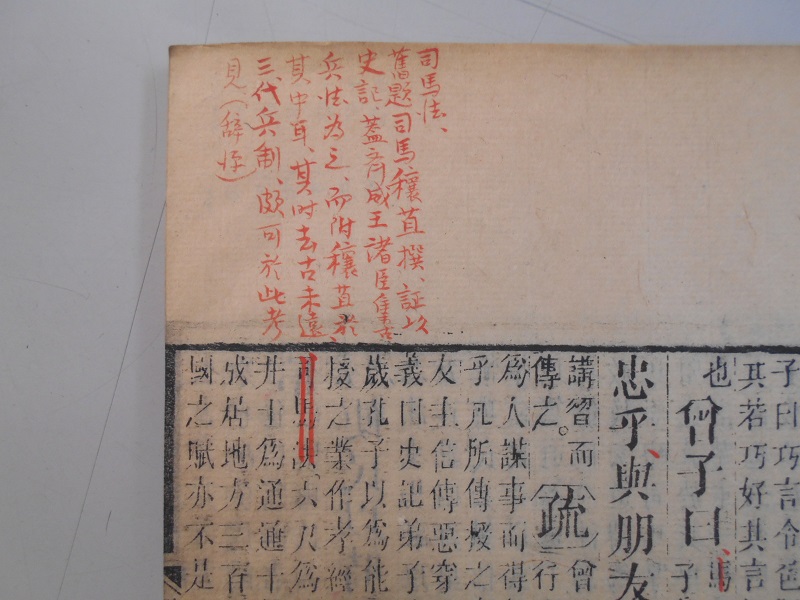 司馬法、
舊題司馬穰苴撰、証以
史記、蓋齊威王諸臣集古
兵法為之、而附穰苴於
其中耳、其时去古未遠
三代兵制、頗可於此考
見(辞源)
子曰巧言令色
其若巧好其言
也 曾子曰 馬
子
忠乎與朋友
講習而
傳之。 疏 曾
行
爲人謀事而得
乎凡所傳授之
友主信傳惡穿
義曰史記弟子
歲孔子以爲能
授之業作孝經
司馬法六尺爲
井十爲通通十
成居地方三百
國之賦亦不是